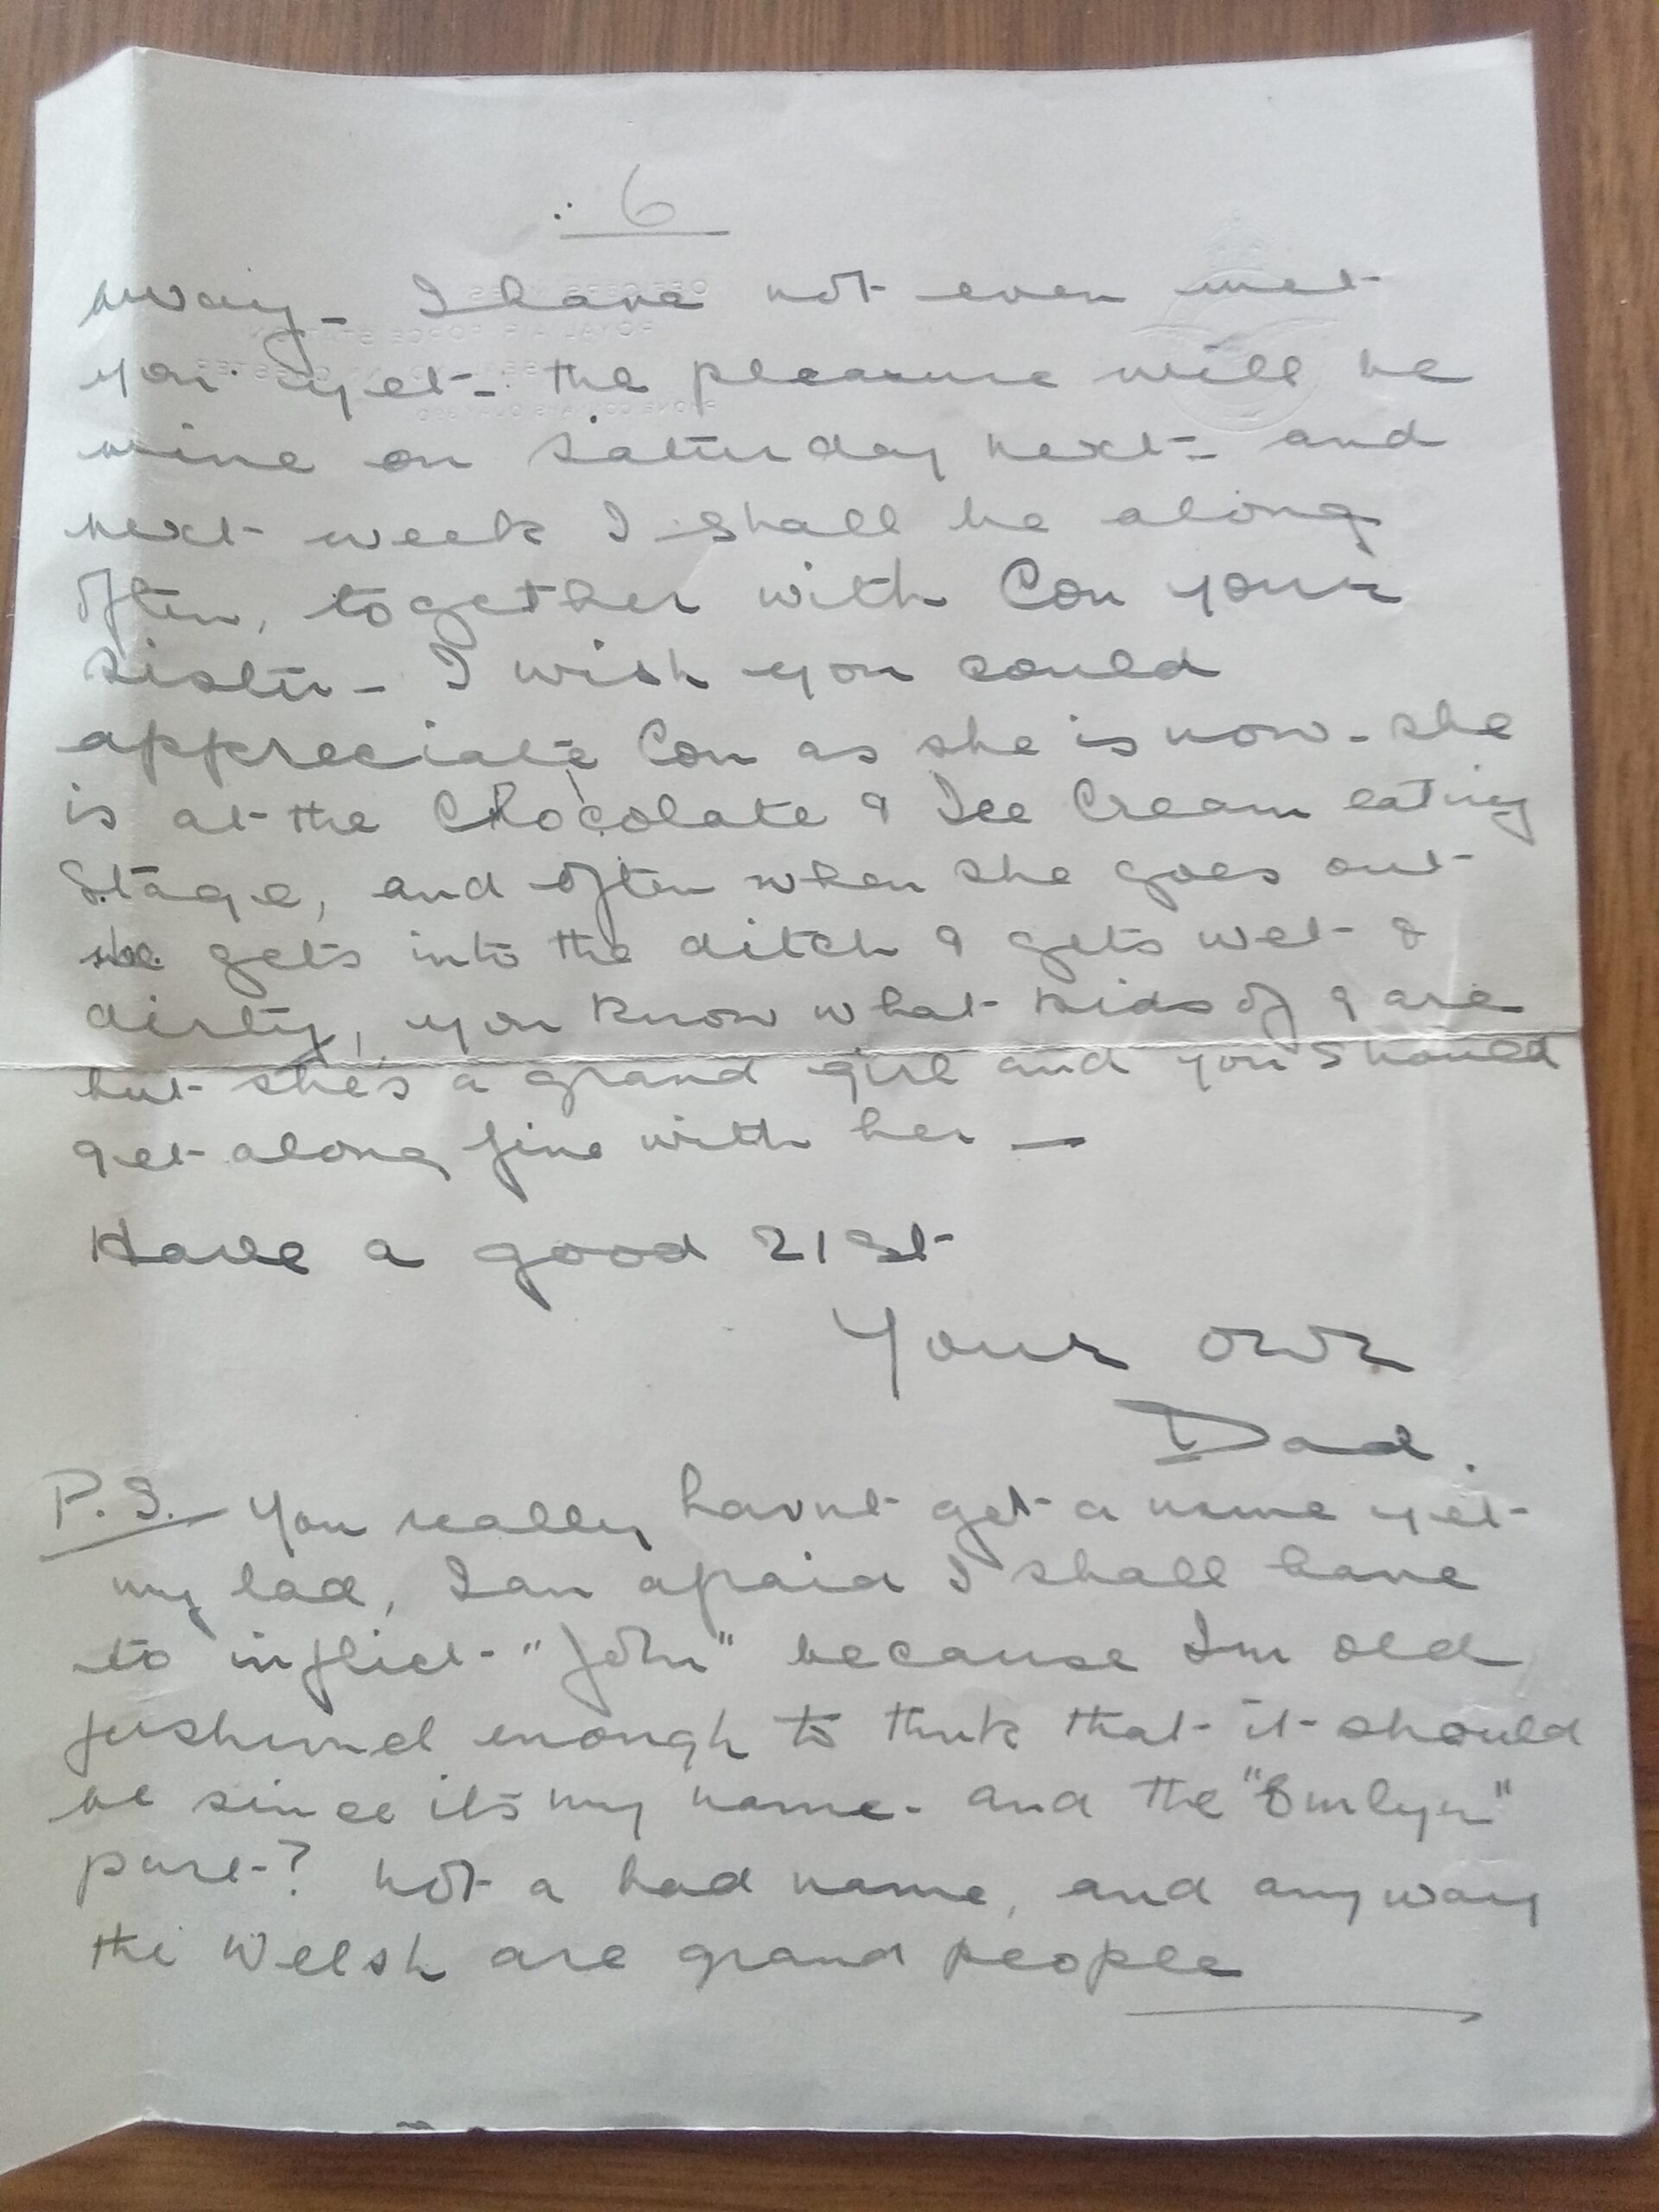 6
away - I have not even met
you yet - the pleasure will be
mine on Saturday next - and
next week I shall be along
often, together with Con your
sister - I wish you could
appreciate Con as she is now - she
is at the Chocolate & Ice Cream eating
Stage, and often when she goes out
she gets into the ditch & gets wet &
dirty, you know what kids of 9 are
but she's a grand girl and you should
get along fine with her —
Have a good 21st
Your own
Dad.
P.S. You really havnt get a name yet
my lad, I am afraid I shall have
to inflict "John" because Im old
fashined enough to think that it should
be since its my name - and the "Emlyn"
part? not a bad name, and anyway
the Welsh are grand people